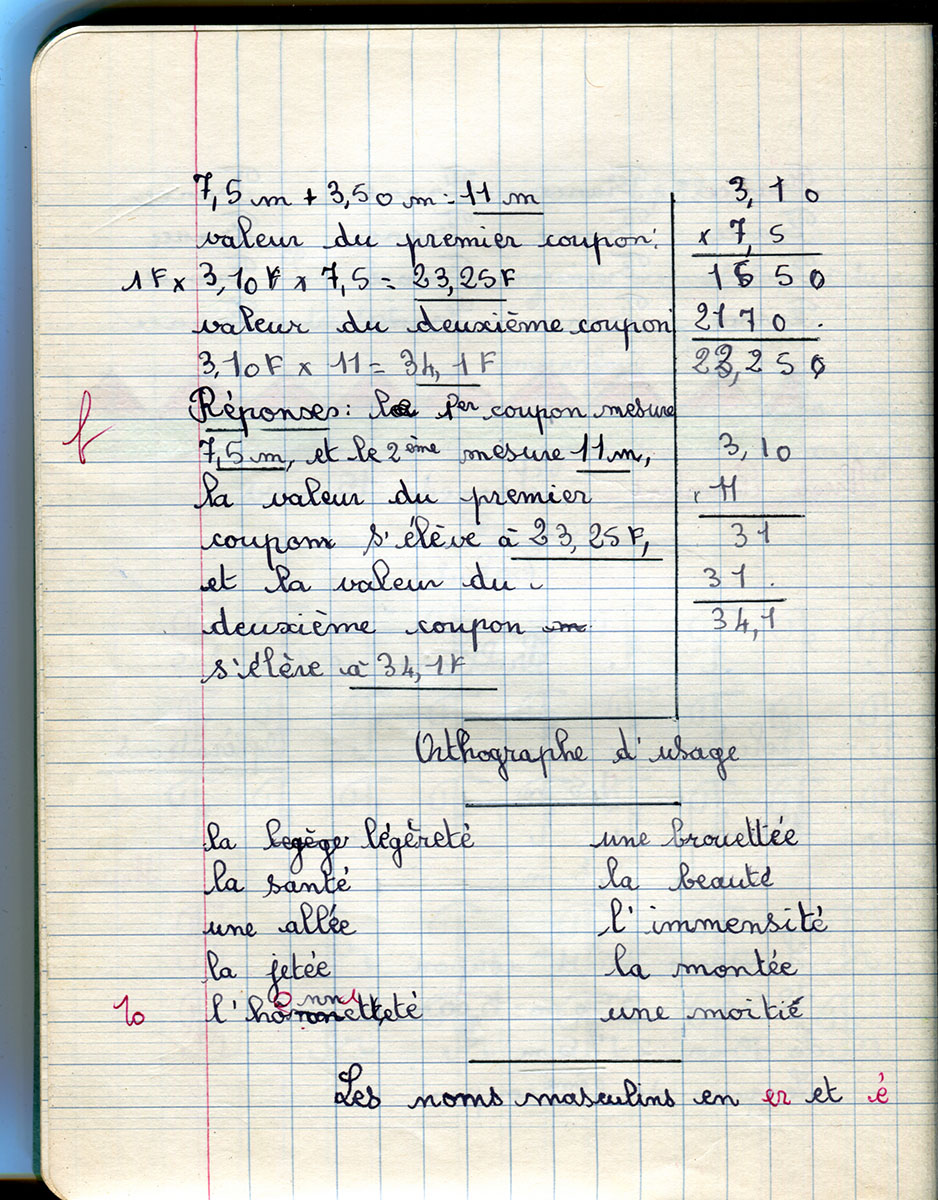 7,5 m + 3,50 m = 11 m
valeur du premier coupon :
1F x 3,10F x 7,5 = 23,25F
valeur du deuxième coupon
3,10F x 11 = 34,1F
Réponses : le 1er coupon mesure
7,5 m, et le 2ème mesure 11 m,
la valeur du premier
coupon s'élève à 23,25F,
et la valeur du
deuxième coupon
s'élève à 34,1F
3,10
x 7,5
1550
2170 .
23,250
3,10
x 11
31
31 .
34,1
Orthographe d'usage
la légèreté une brouettée
la santé la beauté
une allée l'immensité
la jetée la montée
10 l'honnêteté une moitié
Les noms masculins en er et é